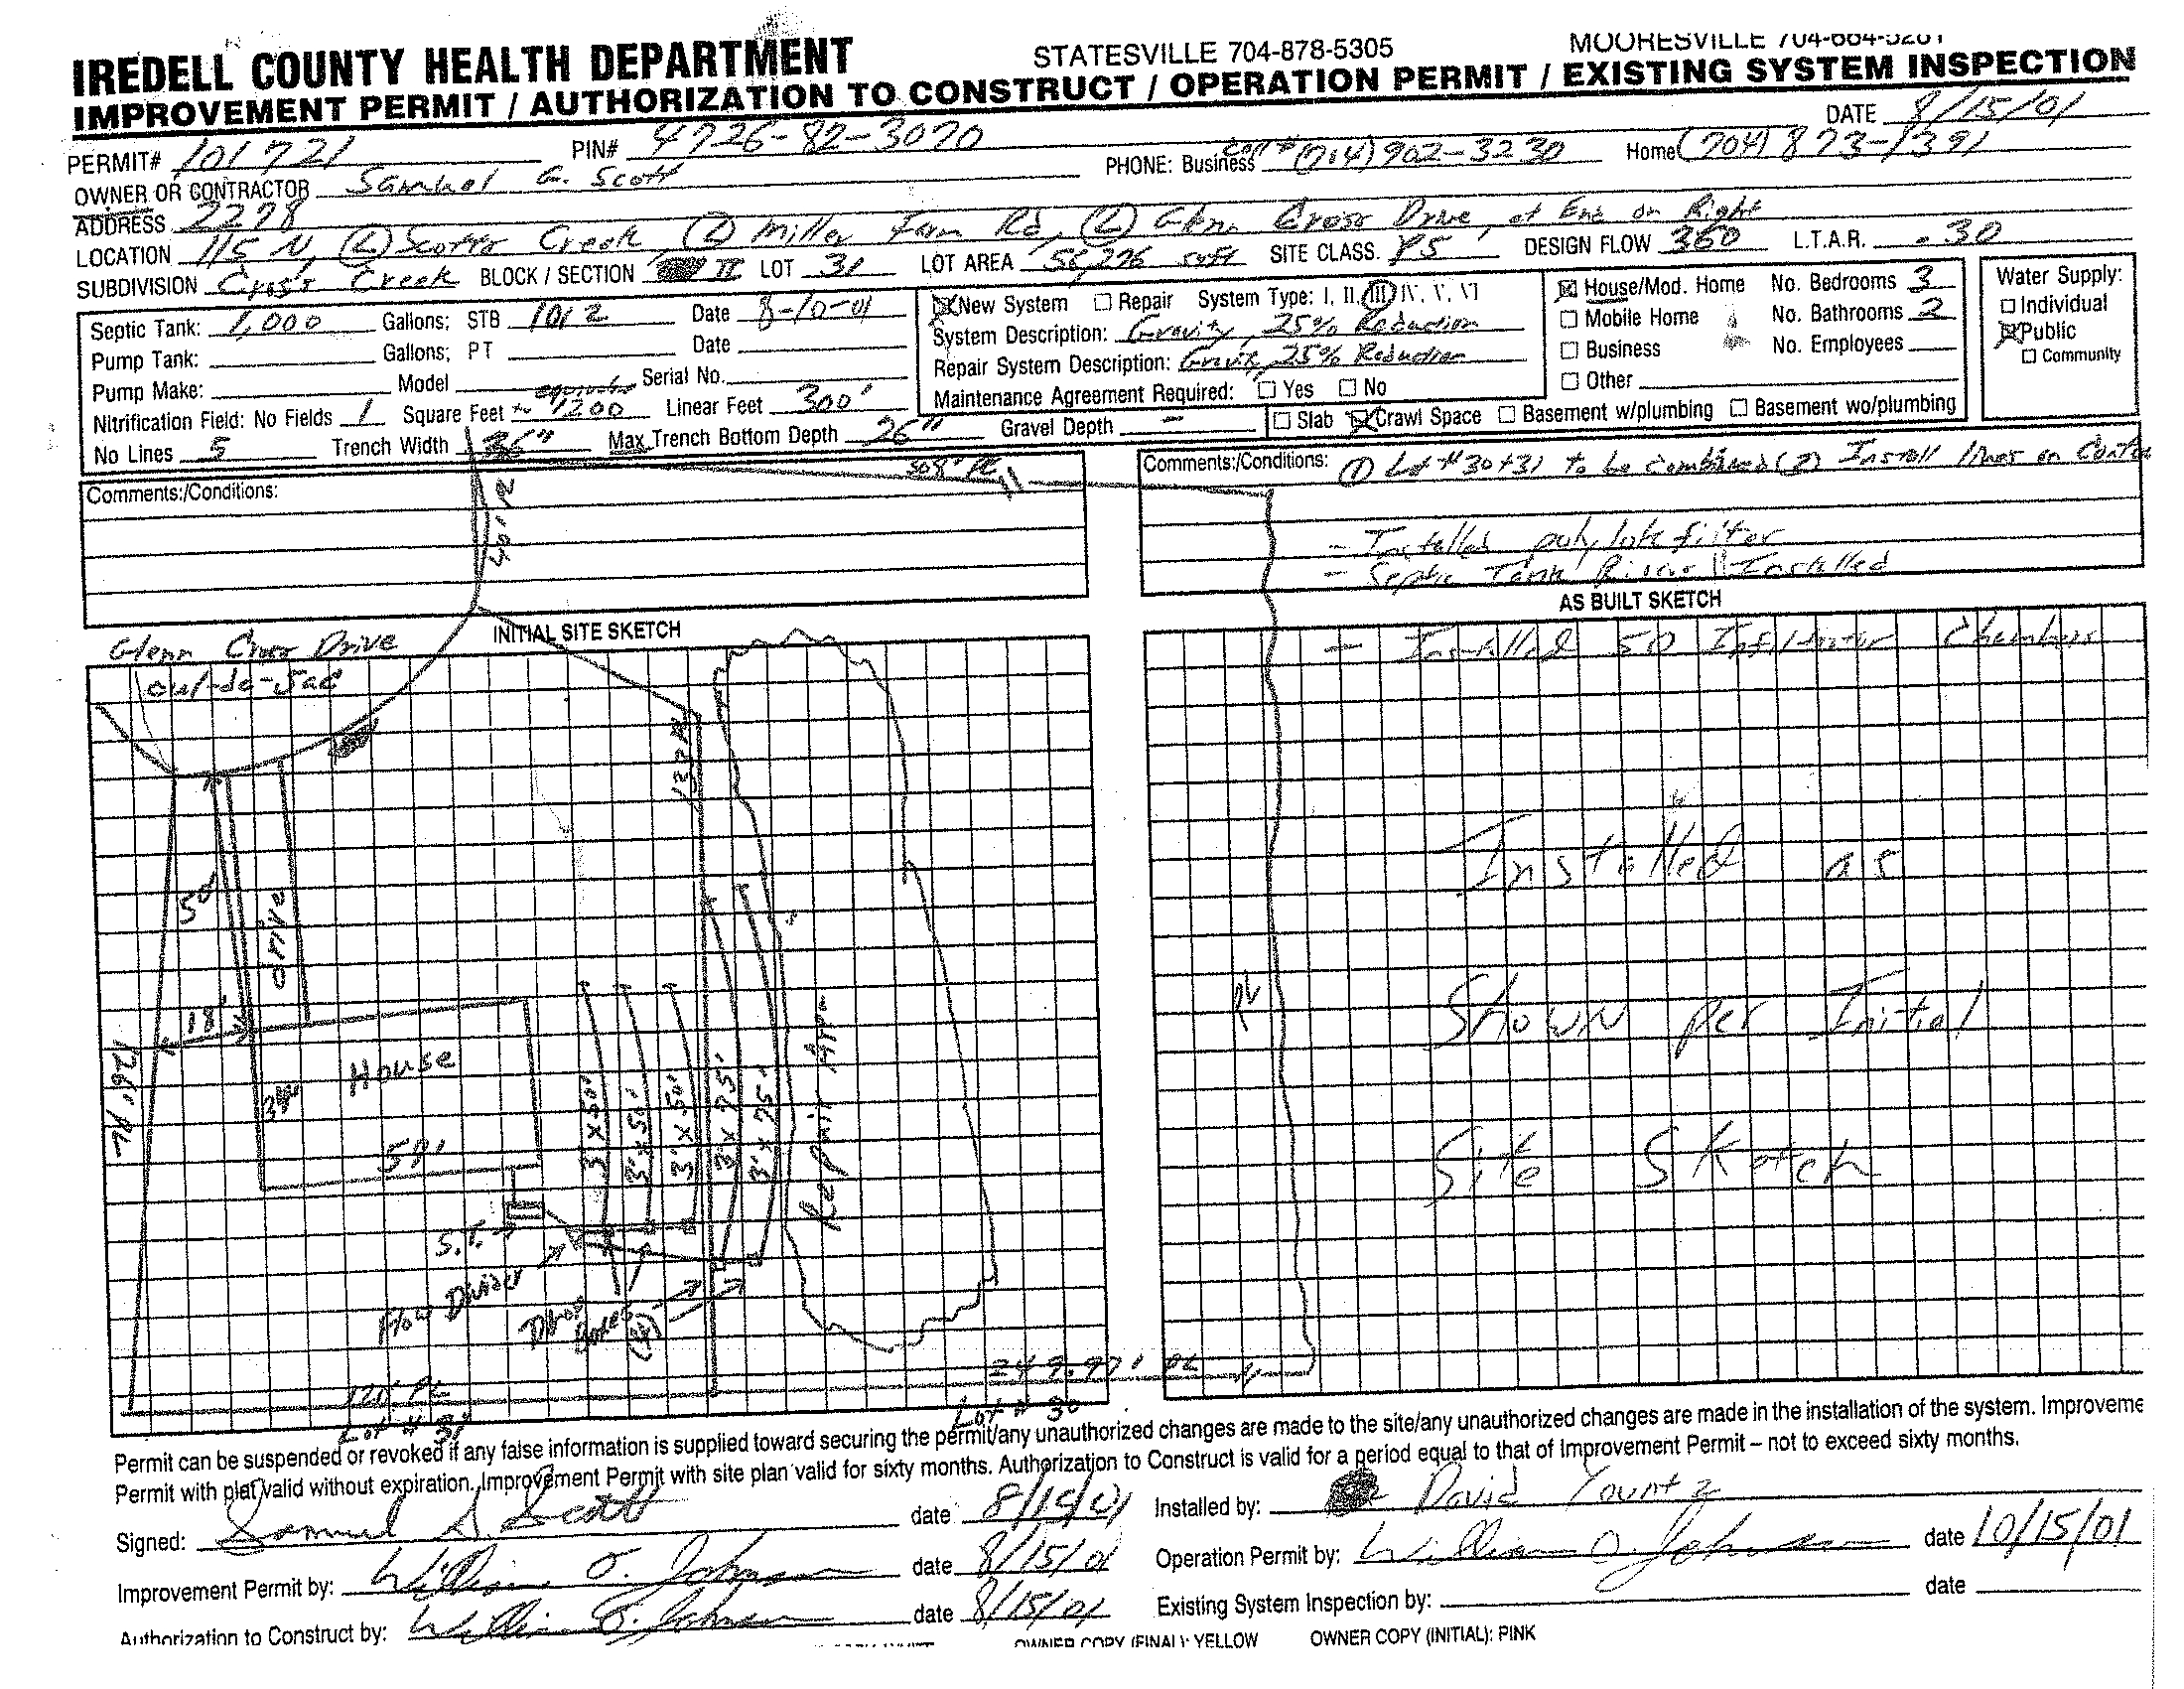 IREDELL COUNTY HEALTH DEPARTMENT STATESVILLE 704-878-5305 MOORESVILLE 704-664-5281
IMPROVEMENT PERMIT / AUTHORIZATION TO CONSTRUCT / OPERATION PERMIT / EXISTING SYSTEM INSPECTION
DATE 8/15/01
PERMIT# 101721 PIN# 4726-82-3070 PHONE: Business (704) 902-3230 Home (704) 873-1391
OWNER OR CONTRACTOR Samuel G. Scott
ADDRESS 2278
LOCATION 115 N, (L) Scotts Creek, (L) Miller Farm Rd, (L) Glenn Cross Drive, at End on Right
SUBDIVISION Cross Creek BLOCK / SECTION II LOT 31 LOT AREA 56,226 sqft SITE CLASS. PS DESIGN FLOW 360 L.T.A.R. .30
Septic Tank: 1,000 Gallons; STB 1012 Date 8-10-01
Pump Tank: Gallons; PT Date
Pump Make: Model Serial No.
Nitrification Field: No Fields 1 Square Feet 1200 Linear Feet 300'
No Lines 5 Trench Width 36" Max Trench Bottom Depth 26" Gravel Depth -
New System Repair System Type: I, II, III, IV, V, VI
System Description: Gravity, 25% Reduction
Repair System Description: Gravity, 25% Reduction
Maintenance Agreement Required: Yes No
House/Mod. Home No. Bedrooms 3
Mobile Home No. Bathrooms 2
Business No. Employees
Other
Slab Crawl Space Basement w/plumbing Basement wo/plumbing
Water Supply:
Individual
Public
Community
Comments:/Conditions:
308' PL
40' PL
Comments:/Conditions: (1) Lot # 30+31 to be combined (2) Install lines on
- Installed polylok filter
- Septic Tank Riser Installed
INITIAL SITE SKETCH
AS BUILT SKETCH
- Installed 50 Infiltrator Chambers
Glenn Cross Drive
cul-de-sac
50'
drive
18'
House
57'
3' x 50'
3' x 50'
3' x 50'
3' x 75'
3' x 75'
Repair Area
S.T.
Flow Divider
Boxes
PL
Lot # 31
249.97' PL
Lot # 30
PL
Installed as
Shown per Initial
Site Sketch
Permit can be suspended or revoked if any false information is supplied toward securing the permit/any unauthorized changes are made to the site/any unauthorized changes are made in the installation of the system. Improveme
Permit with plat valid without expiration. Improvement Permit with site plan valid for sixty months. Authorization to Construct is valid for a period equal to that of Improvement Permit – not to exceed sixty months.
Signed: Samuel G. Scott date 8/15/01
Installed by: David Yountz
Improvement Permit by: William O. Johnson date 8/15/01
Operation Permit by: William O. Johnson date 10/15/01
Authorization to Construct by: William O. Johnson date 8/15/01
Existing System Inspection by: date
OWNER COPY (FINAL): YELLOW OWNER COPY (INITIAL): PINK